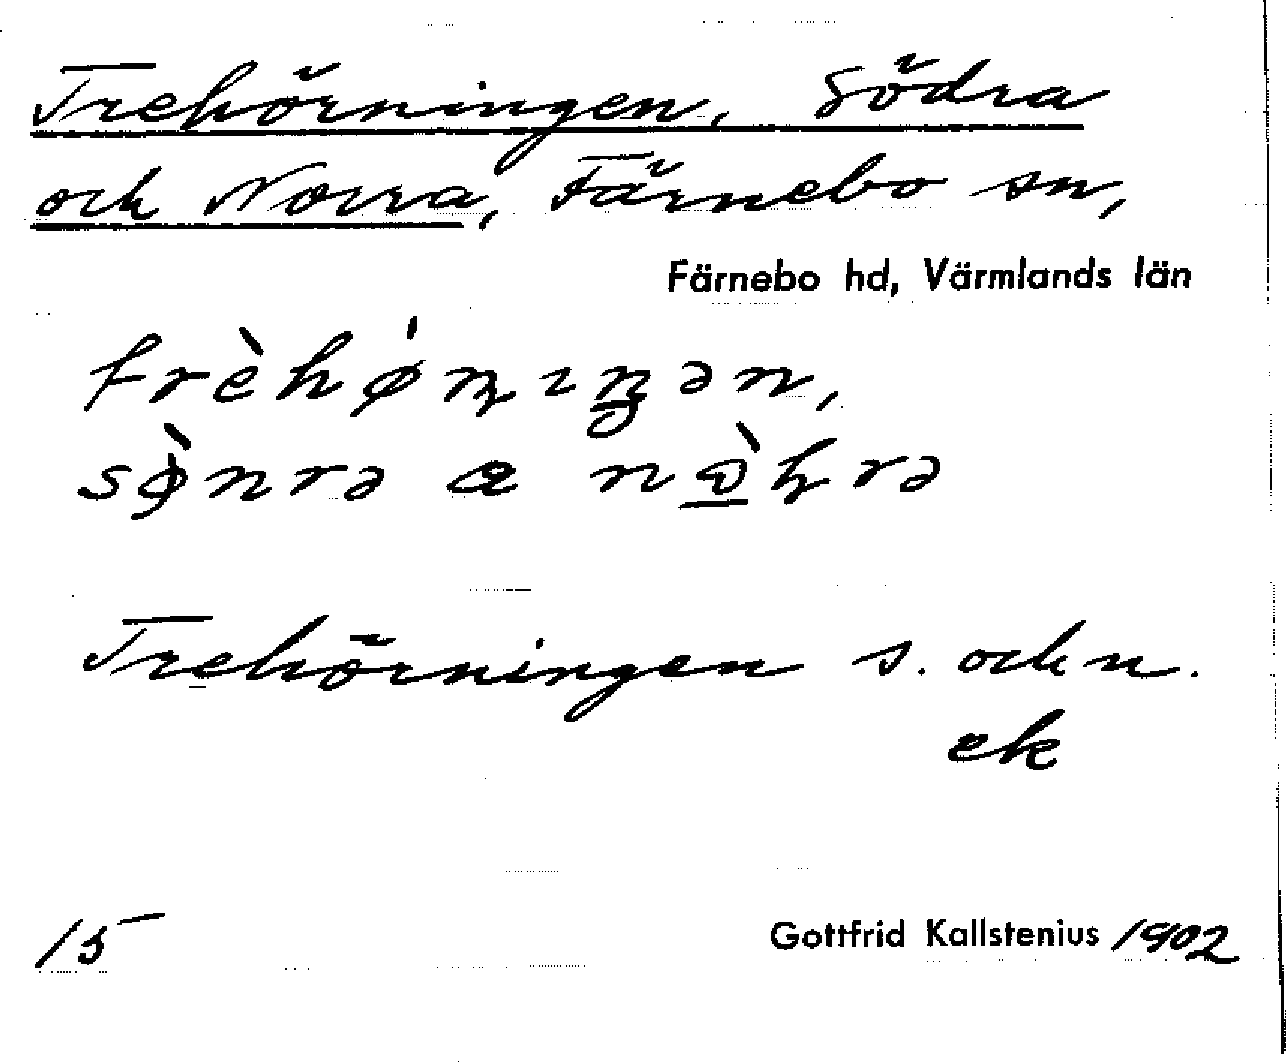 Trehörningen, Södra
och Norra, Färnebo sn,
Färnebo hd, Värmlands län
trèhǿɳıŋən,
sø̀nrə a nɒ̀ɦrə
Trehörningen s. och n.
ek
15
Gottfrid Kallstenius 1902